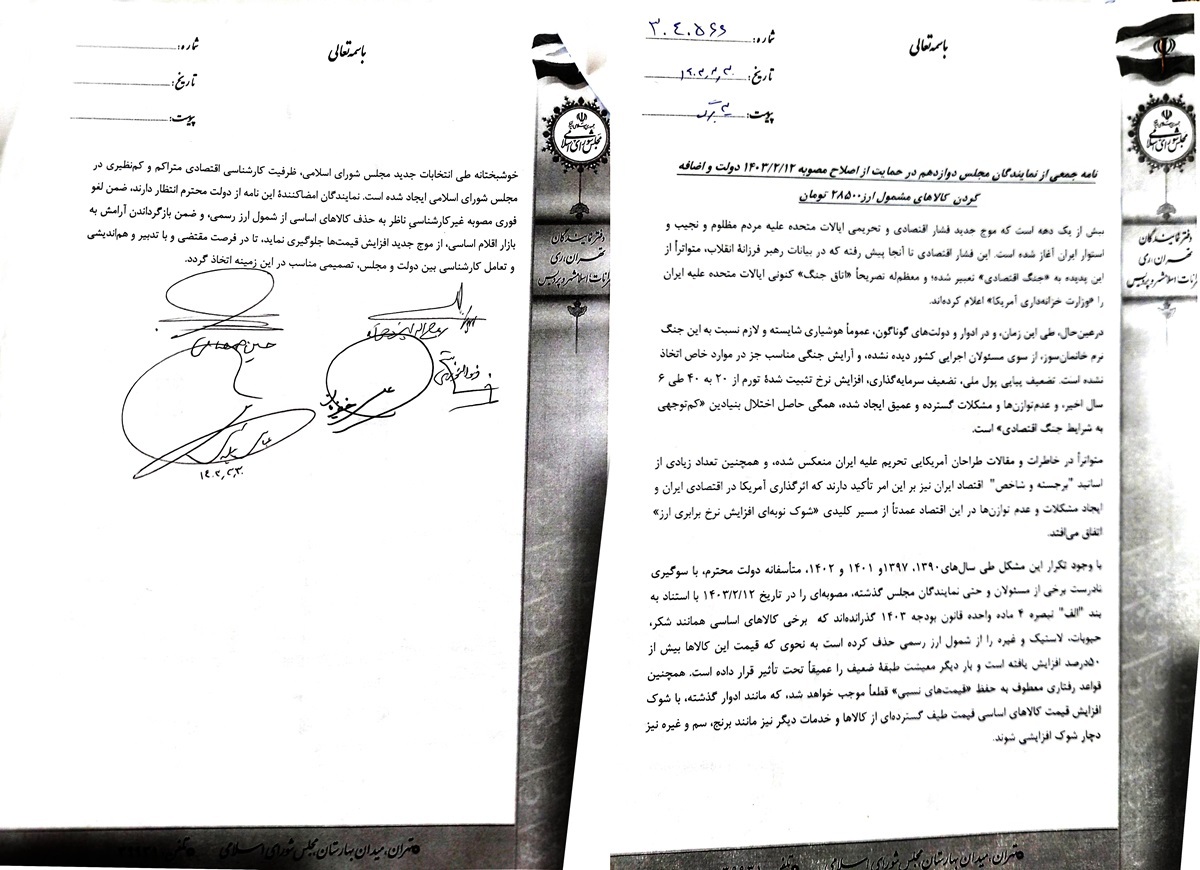 باسمه‌تعالی
شماره: ۳۰۴۰۵۶۶
تاریخ: ۱۴۰۳٫۳٫۳۰
پیوست:
مجلس شورای اسلامی
دفتر نمایندگان
تهران، ری
نامه جمعی از نمایندگان مجلس دوازدهم در حمایت از اصلاح مصوبه ۱۴۰۳/۲/۱۲ دولت و اضافه
کردن کالاهای مشمول ارز۲۸۵۰۰ تومان
بیش از یک دهه است که موج جدید فشار اقتصادی و تحریمی ایالات متحده علیه مردم مظلوم و نجیب و
استوار ایران آغاز شده است. این فشار اقتصادی تا آنجا پیش رفته که در بیانات رهبر فرزانهٔ انقلاب، متواتراً از
این پدیده به «جنگ اقتصادی» تعبیر شده؛ و معظم‌له تصریحاً «اتاق جنگ» کنونی ایالات متحده علیه ایران
را «وزارت خزانه‌داری آمریکا» اعلام کرده‌اند.
درعین‌حال، طی این زمان، و در ادوار و دولت‌های گوناگون، عموماً هوشیاری شایسته و لازم نسبت به این جنگ
نرم خانمان‌سوز، از سوی مسئولان اجرایی کشور دیده نشده، و آرایش جنگی مناسب جز در موارد خاص اتخاذ
نشده است. تضعیف پیاپی پول ملی، تضعیف سرمایه‌گذاری، افزایش نرخ تثبیت شدهٔ تورم از ۲۰ به ۴۰ طی ۶
سال اخیر، و عدم‌توازن‌ها و مشکلات گسترده و عمیق ایجاد شده، همگی حاصل اختلال بنیادین «کم‌توجهی
به شرایط جنگ اقتصادی» است.
متواتراً در خاطرات و مقالات طراحان آمریکایی تحریم علیه ایران منعکس شده، و همچنین تعداد زیادی از
اساتید "برجسته و شاخص" اقتصاد ایران نیز بر این امر تأکید دارند که اثرگذاری آمریکا در اقتصادی ایران و
ایجاد مشکلات و عدم توازن‌ها در این اقتصاد عمدتاً از مسیر کلیدی «شوک نوبه‌ای افزایش نرخ برابری ارز»
اتفاق می‌افتد.
با وجود تکرار این مشکل طی سال‌های۱۳۹۰، ۱۳۹۷و ۱۴۰۱ و ۱۴۰۲، متأسفانه دولت محترم، با سوگیری
نادرست برخی از مسئولان و حتی نمایندگان مجلس گذشته، مصوبه‌ای را در تاریخ ۱۴۰۳/۲/۱۲ با استناد به
بند "الف" تبصره ۴ ماده واحده قانون بودجه ۱۴۰۳ گذرانده‌اند که برخی کالاهای اساسی همانند شکر،
حبوبات، لاستیک و غیره را از شمول ارز رسمی حذف کرده است به نحوی که قیمت این کالاها بیش از
۵۰درصد افزایش یافته است و بار دیگر معیشت طبقهٔ ضعیف را عمیقاً تحت تأثیر قرار داده است. همچنین
قواعد رفتاری معطوف به حفظ «قیمت‌های نسبی» قطعاً موجب خواهد شد، که مانند ادوار گذشته، با شوک
افزایش قیمت کالاهای اساسی قیمت طیف گسترده‌ای از کالاها و خدمات دیگر نیز مانند برنج، سم و غیره نیز
دچار شوک افزایشی شوند.
تهران، میدان بهارستان مجلس شورای اسلامی
باسمه‌تعالی
شماره:
تاریخ:
پیوست:
مجلس شورای اسلامی
دفتر نمایندگان
تهران، ری
خوشبختانه طی انتخابات جدید مجلس شورای اسلامی، ظرفیت کارشناسی اقتصادی متراکم و کم‌نظیری در
مجلس شورای اسلامی ایجاد شده است. نمایندگان امضاکنندهٔ این نامه از دولت محترم انتظار دارند، ضمن لغو
فوری مصوبه غیرکارشناسیِ ناظر به حذف کالاهای اساسی از شمول ارز رسمی، و ضمن بازگرداندن آرامش به
بازار اقلام اساسی، از موج جدید افزایش قیمت‌ها جلوگیری نماید، تا در فرصت مقتضی و با تدبیر و هم‌اندیشی
و تعامل کارشناسی بین دولت و مجلس، تصمیمی مناسب در این زمینه اتخاذ گردد.
۱۴۰۳٫۳٫۳۰
تهران، میدان بهارستان مجلس شورای اسلامی
تلفن: